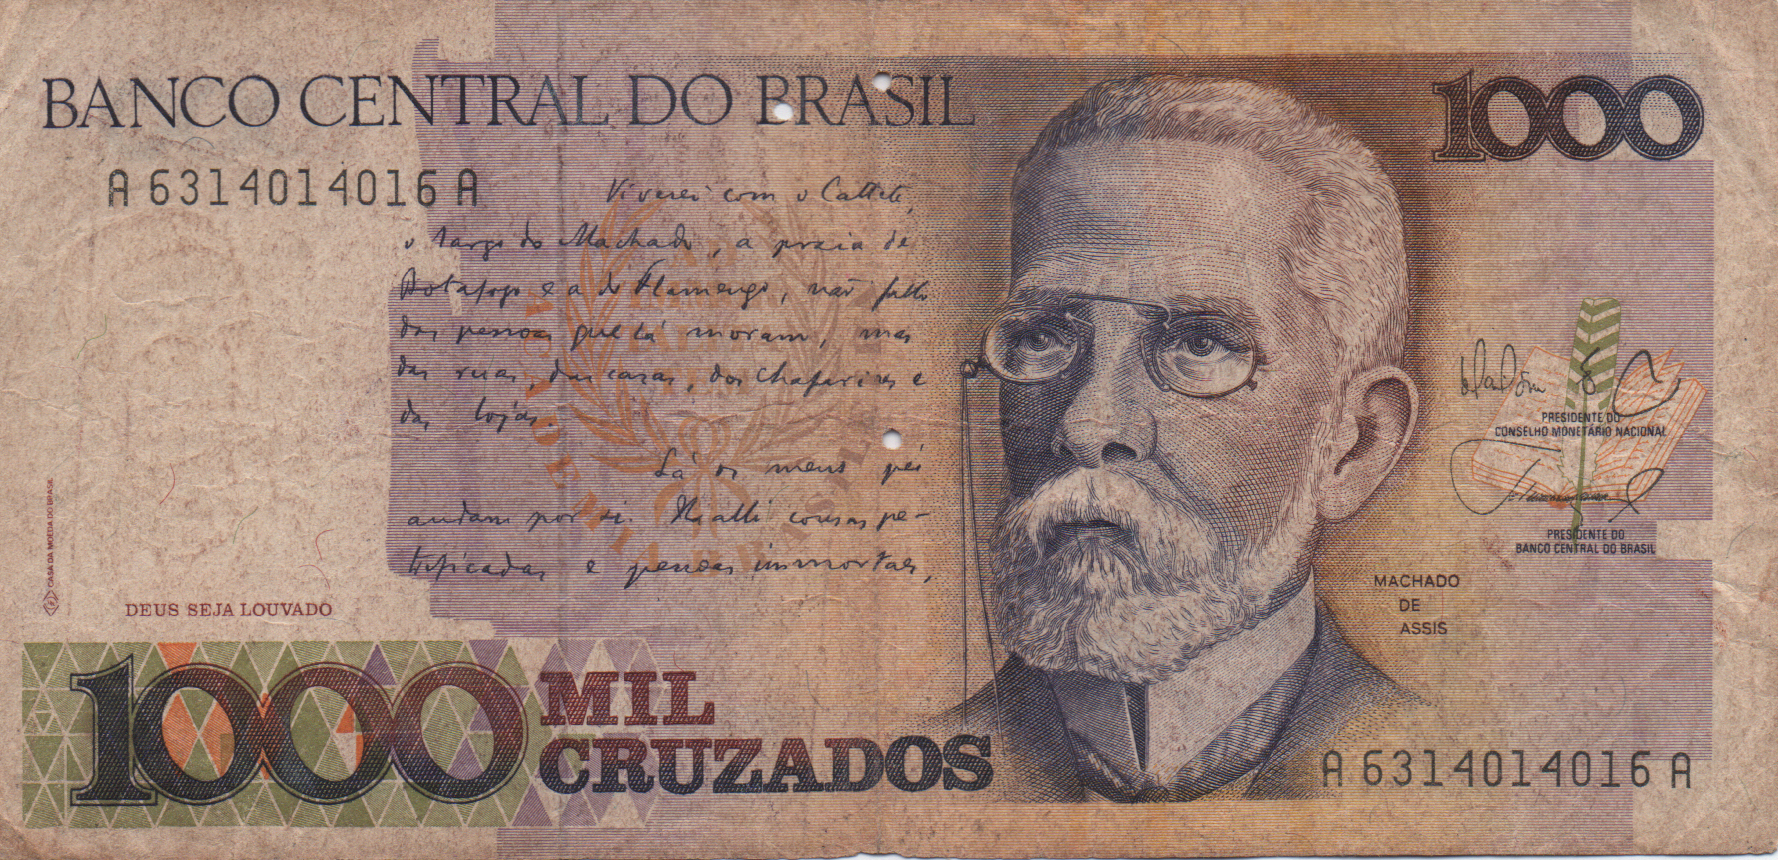 BANCO CENTRAL DO BRASIL
1000
A 6314014016 A
Viverei com o Cattete,
o largo do Machado, a praia de
Botafogo e a do Flamengo, não fallo
das pessoas que lá moram, mas
das ruas, das casas, dos chafarizes e
das lojas.
Lá os meus pés
andam por si. Ha alli cousas pe-
trificadas e pessoas immortaes,
PRESIDENTE DO
CONSELHO MONETÁRIO NACIONAL
PRESIDENTE DO
BANCO CENTRAL DO BRASIL
MACHADO
DE
ASSIS
CASA DA MOEDA DO BRASIL
DEUS SEJA LOUVADO
1000 MIL
CRUZADOS
A 6314014016 A